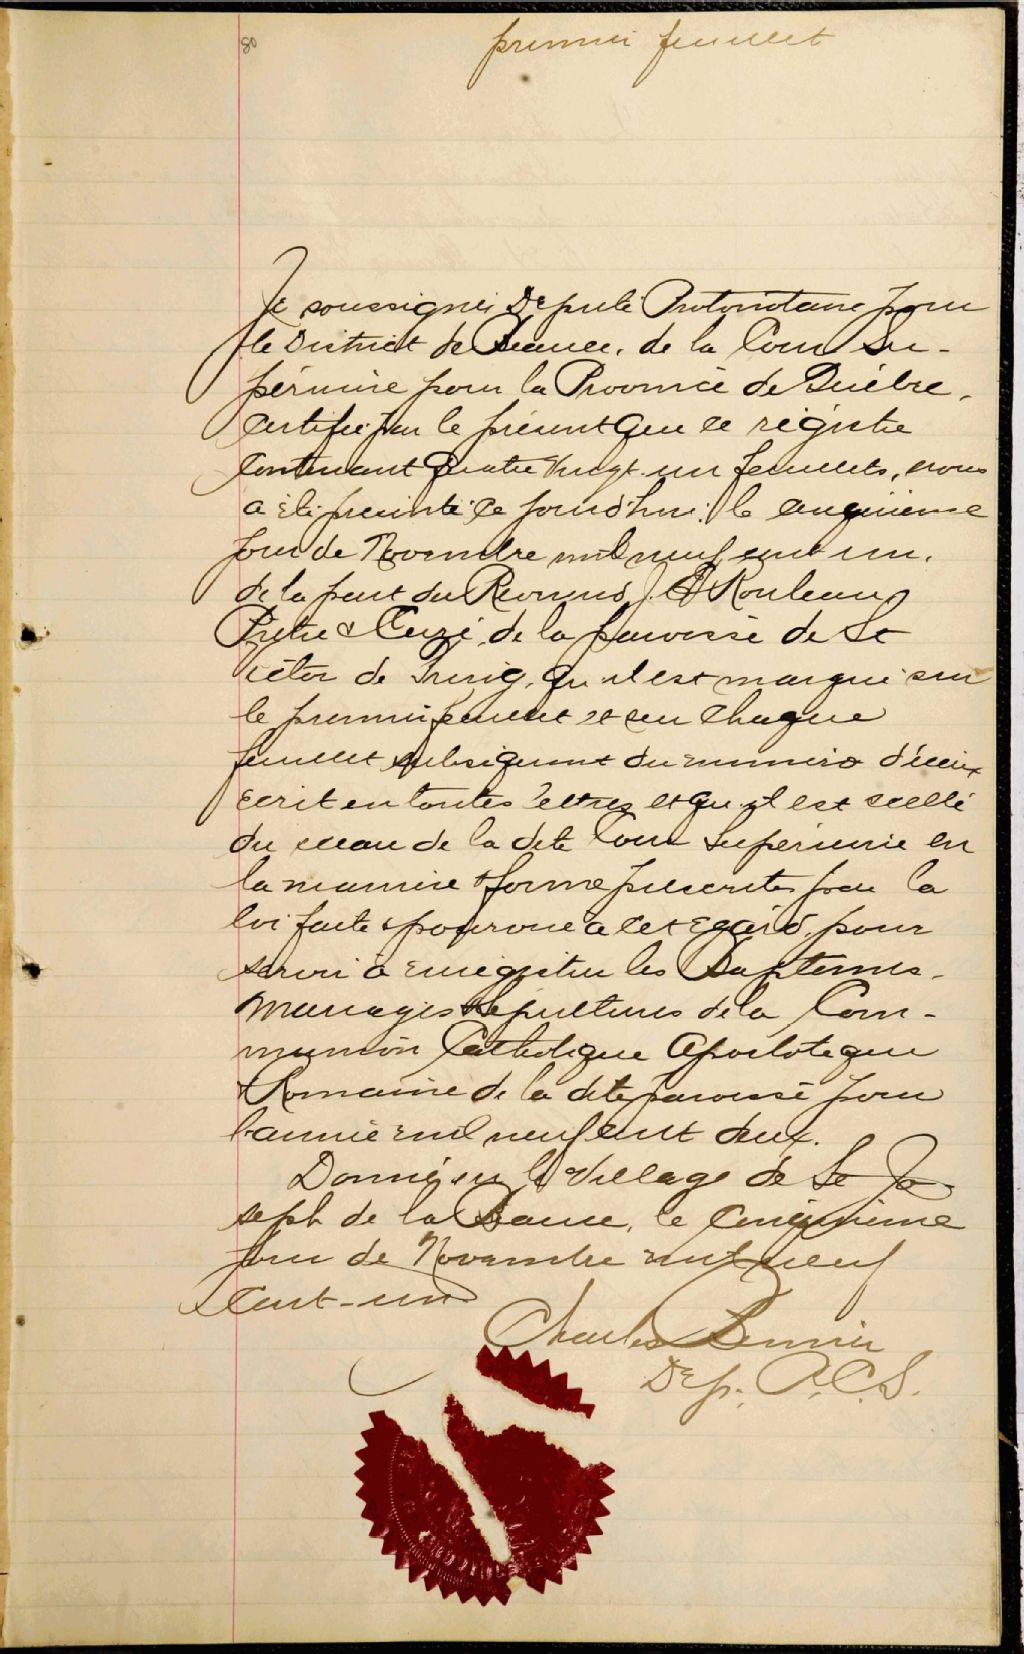 80
premier feuillet
Je soussigné Député Protonotaire pour
le District de Beauce, de la Cour Su-
périeure pour la Province de Québec,
certifie par le présent que ce régistre
contenant quatre vingt un feuillets, nous
a été présenté ce jourd'hui le cinquième
jour de Novembre mil neuf cent un,
de la part du Révérend J. Rouleau
Prêtre & Curé, de la paroisse de St
Victor de Tring, qu'il est marqué sur
le premier feuillet et sur chaque
feuillet subséquent du numéro d'icelui
écrit en toutes lettres et qu'il est scellé
du sceau de la dite Cour Supérieure en
la manière & forme prescrites par la
loi faite & pourvue à cet égard, pour
servir à enrégistrer les Baptêmes,
Mariages & Sépultures de la Com-
munion Catholique Apostolique
& Romaine de la dite paroisse pour
l'année mil neuf cent deux.
Donné en le Village de St Jo-
seph de la Beauce, le cinquième
jour de Novembre mil neuf
cent-un
Charles Bernier
Dep. P.C.S.